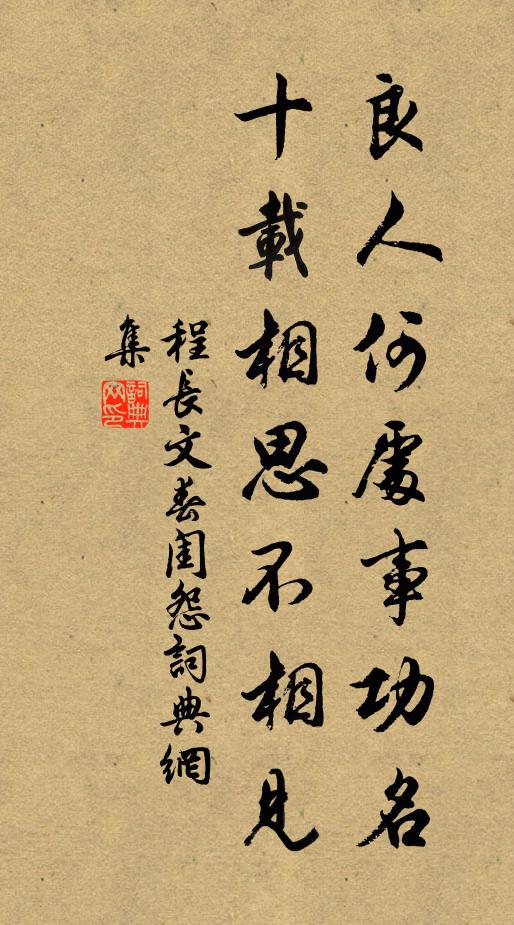 良人何處事功名
十載相思不相見
程長文春閨怨詞典網
集
詞典
网印